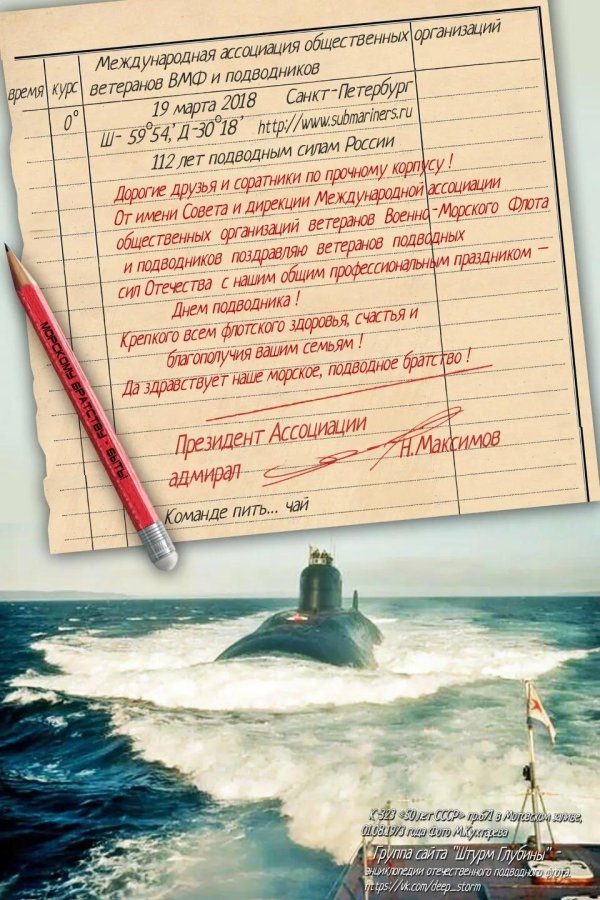 Международная ассоциация общественных организаций
время курс ветеранов ВМФ и подводников
0° 19 марта 2018 Санкт-Петербург
Ш- 59°54,' Д-30°18' http://www.submariners.ru
112 лет подводным силам России
Дорогие друзья и соратники по прочному корпусу !
От имени Совета и дирекции Международной ассоциации
общественных организаций ветеранов Военно-Морского Флота
и подводников поздравляю ветеранов подводных
сил Отечества с нашим общим профессиональным праздником –
Днем подводника !
Крепкого всем флотского здоровья, счастья и
благополучия вашим семьям !
Да здравствует наше морское, подводное братство !
Президент Ассоциации
адмирал Н.Максимов
Команде пить... чай
МОРСКОМУ БРАТСТВУ - БЫТЬ!
К-323 «50 лет СССР» пр.671 в Мотовском заливе,
01.08.1973 года Фото М.Кухтарева
Группа сайта "Штурм Глубины" -
энциклопедии отечественного подводного флота.
https://vk.com/deep_storm